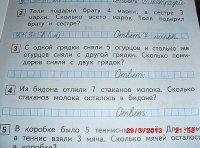 2 Толя подарил брату 4 марки, а сестре 3
марки. Сколько всего марок Толя подарил
брату и сестре?
Ответ:
3 С одной грядки сняли 5 огурцов и столько же
огурцов сняли с другой грядки. Сколько поми-
доров сняли с двух грядок?
Ответ:
4 Из бидона отлили 7 стаканов молока. Сколько
стаканов молока осталось в бидоне?
Ответ:
5 В коробке было 5 теннисных
в теннис взяли 3 мяча. Сколько мячей осталось
в коробке?
29/3/2013